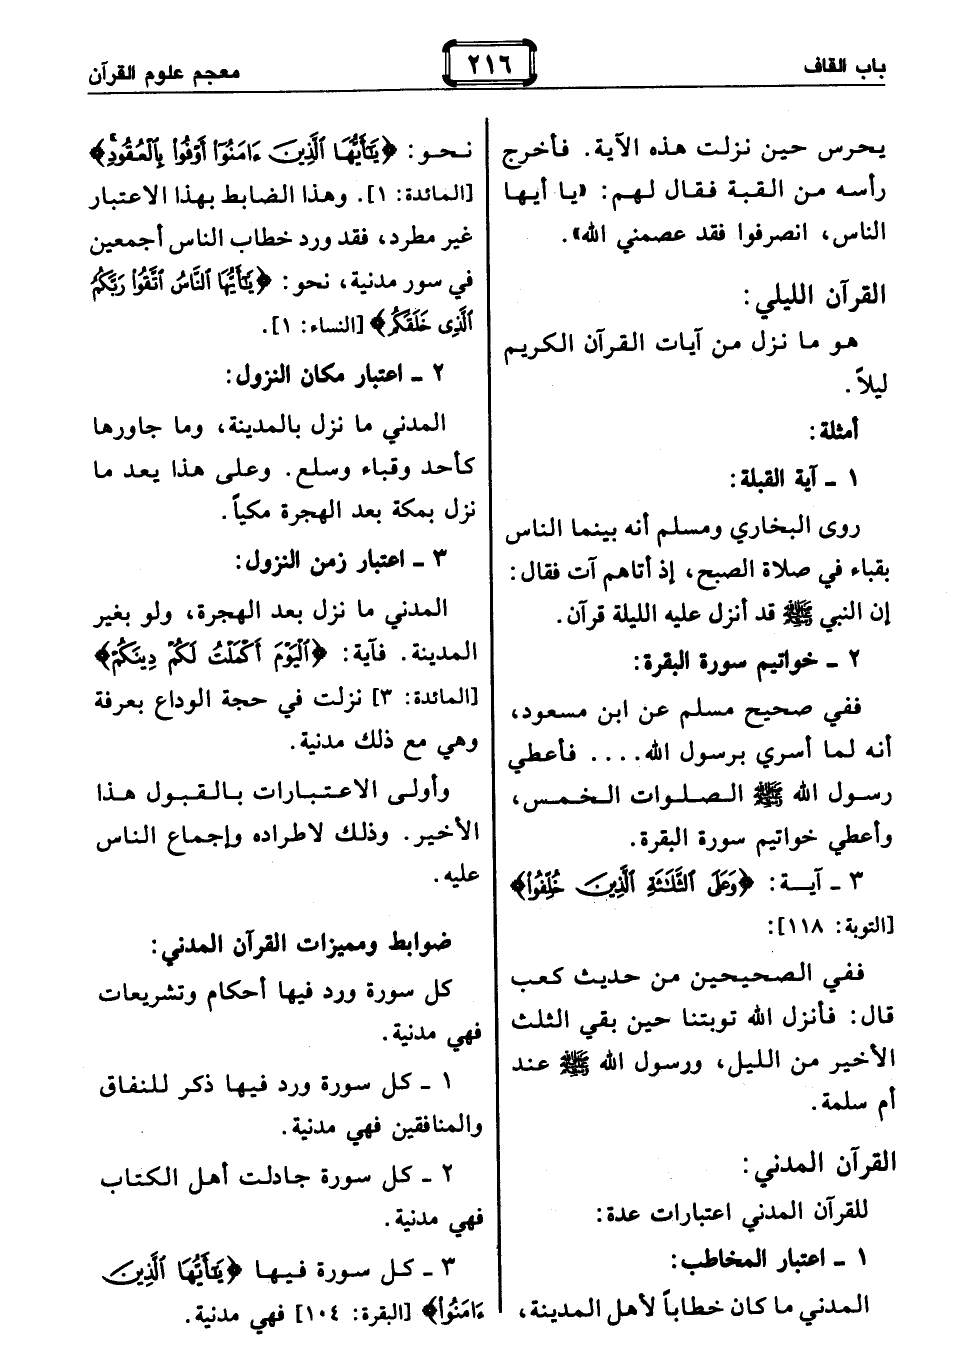 باب القاف
٢١٦
معجم علوم القرآن
يحرس حين نزلت هذه الآية. فأخرج
رأسه من القبة فقال لهم: «يا أيها
الناس، انصرفوا فقد عصمني الله».
القرآن الليلي:
هو ما نزل من آيات القرآن الكريم
ليلاً.
أمثلة:
١ ـ آية القبلة:
روى البخاري ومسلم أنه بينما الناس
بقباء في صلاة الصبح، إذ أتاهم آت فقال:
إن النبي ﷺ قد أنزل عليه الليلة قرآن.
٢ ـ خواتيم سورة البقرة:
ففي صحيح مسلم عن ابن مسعود،
أنه لما أسري برسول الله.... فأعطي
رسول الله ﷺ الصلوات الخمس،
وأعطي خواتيم سورة البقرة.
٣ ـ آية: ﴿وَعَلَى ٱلثَّلَٰثَةِ ٱلَّذِينَ خُلِّفُوا۟﴾
[التوبة: ١١٨]:
ففي الصحيحين من حديث كعب
قال: فأنزل الله توبتنا حين بقي الثلث
الأخير من الليل، ورسول الله ﷺ عند
أم سلمة.
القرآن المدني:
للقرآن المدني اعتبارات عدة:
١ ـ اعتبار المخاطب:
المدني ما كان خطاباً لأهل المدينة،
نحو: ﴿يَٰٓأَيُّهَا ٱلَّذِينَ ءَامَنُوٓا۟ أَوْفُوا۟ بِٱلْعُقُودِ﴾
[المائدة: ١]. وهذا الضابط بهذا الاعتبار
غير مطرد، فقد ورد خطاب الناس أجمعين
في سور مدنية، نحو: ﴿يَٰٓأَيُّهَا ٱلنَّاسُ ٱتَّقُوا۟ رَبَّكُمُ
ٱلَّذِى خَلَقَكُم﴾ [النساء: ١].
٢ ـ اعتبار مكان النزول:
المدني ما نزل بالمدينة، وما جاورها
كأحد وقباء وسلع. وعلى هذا يعد ما
نزل بمكة بعد الهجرة مكياً.
٣ ـ اعتبار زمن النزول:
المدني ما نزل بعد الهجرة، ولو بغير
المدينة. فآية: ﴿ٱلْيَوْمَ أَكْمَلْتُ لَكُمْ دِينَكُمْ﴾
[المائدة: ٣] نزلت في حجة الوداع بعرفة
وهي مع ذلك مدنية.
وأولى الاعتبارات بالقبول هذا
الأخير. وذلك لاطراده وإجماع الناس
عليه.
ضوابط ومميزات القرآن المدني:
كل سورة ورد فيها أحكام وتشريعات
فهي مدنية.
١ ـ كل سورة ورد فيها ذكر للنفاق
والمنافقين فهي مدنية.
٢ ـ كل سورة جادلت أهل الكتاب
فهي مدنية.
٣ ـ كل سورة فيها ﴿يَٰٓأَيُّهَا ٱلَّذِينَ
ءَامَنُوا۟﴾ [البقرة: ١٠٤] فهي مدنية.